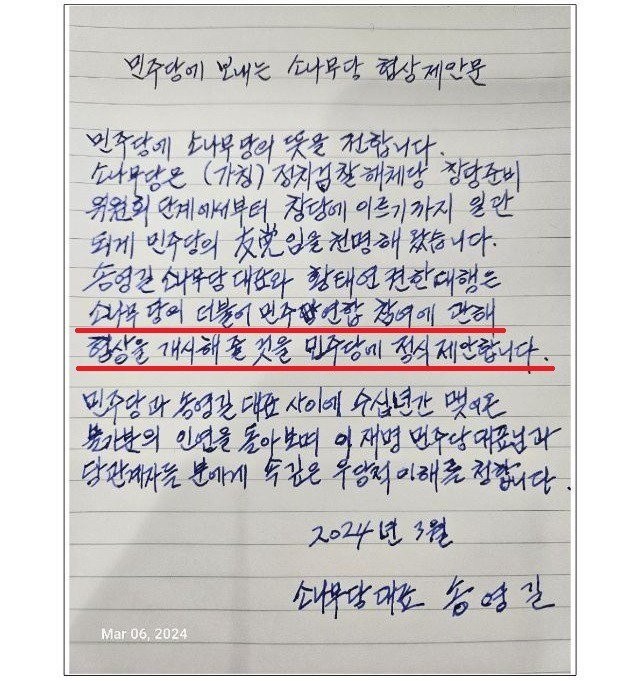 민주당에 보내는 소나무당 협상제안문
민주당에 소나무당의 뜻을 전합니다.
소나무당은 (가칭) 정치검찰해체당 창당준비
위원회 단계에서부터 창당에 이르기까지 일관
되게 민주당의 友党임을 천명해 왔습니다.
송영길 소나무당 대표와 황태연 권한대행은
소나무당의 더불어민주연합 참여에 관해
협상을 개시해 줄 것을 민주당에 정식 제안합니다.
민주당과 송영길 대표 사이에 수십년간 맺어온
불가분의 인연을 돌아보며 이재명 민주당 대표님과
당관계자들 분에게 속깊은 우당적 이해를 청합니다.
2024년 3월
소나무당대표 송영길
Mar 06, 2024